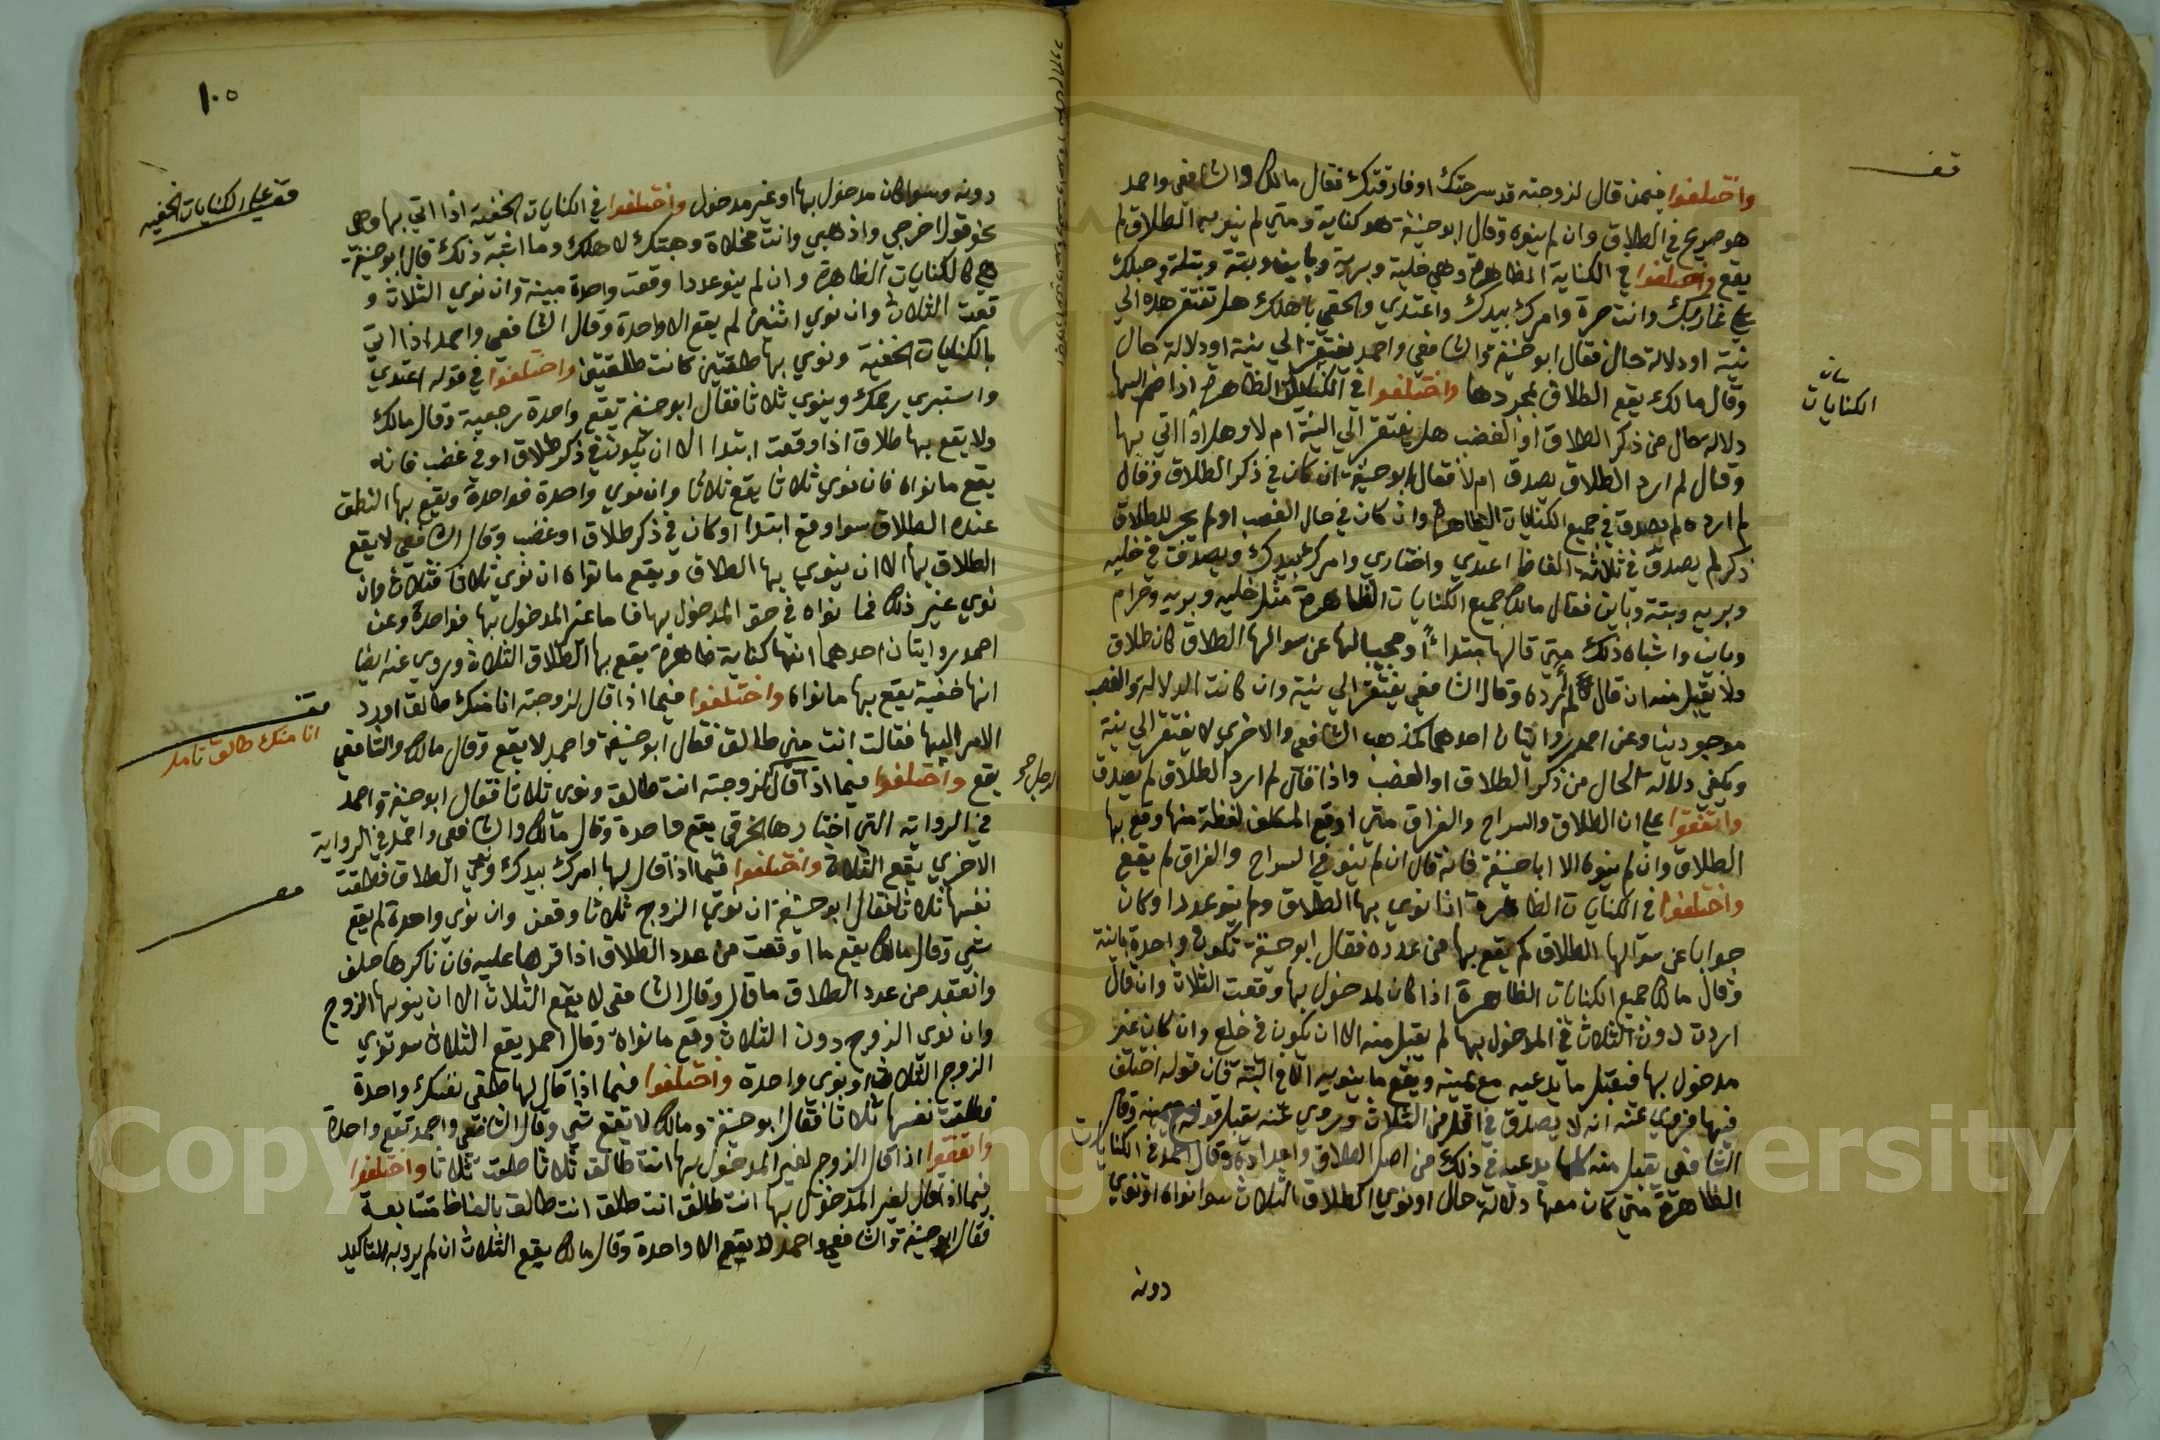 قف
واختلفوا فيمن قال لزوجته قد سرحتك او فارقتك فقال مالك والشافعي واحمد
هو صريح في الطلاق وان لم ينوه وقال ابو حنيفة هو كناية ومتي لم ينو به الطلاق لم
يقع واختلفوا في الكناية الظاهرة وهي خلية وبرية وباين وبتة وبتلة وحبلك
علي غاربك وانت حرة وامرك بيدك واعتدي والحقي باهلك هل تفتقر هذه الي
نية او دلالة حال فقال ابو حنيفة والشافعي واحمد يفتقر الي نية او دلالة حال
بيان
الكنايات
وقال مالك يقع الطلاق بمجردها واختلفوا في الكنايات الظاهرة اذا انضم اليها
دلالة حال من ذكر الطلاق او الغضب هل يفتقر الي النية ام لا وهل اذا اتي بها
وقال لم ارد الطلاق يصدق ام لا فقال ابو حنيفة ان كان في ذكر الطلاق وقال
لم ارده لم يصدق في جميع الكنايات الظاهرة وان كان في حال الغضب او لم يجر للطلاق
ذكر لم يصدق في ثلاثة الفاظ اعتدي واختاري وامرك بيدك ويصدق في خلية
وبرية وبتة وباين فقال مالك جميع الكنايات الظاهرة مثل خلية وبرية وحرام
وباين واشباه ذلك متي قالها مبتداً او مجيبا لها عن سوالها الطلاق كان طلاق
ولا يقبل منه ان قال لم ارده وقال الشافعي يفتقر الي نية وان كانت الدلالة والغضب
موجودينا وعن احمد روايتان احدهما كمذهب الشافعي والاخري لا يفتقر الي نية
ويكفي دلالة الحال من ذكر الطلاق او الغضب واذا قال لم ارد الطلاق لم يصدق
واتفقوا علي ان الطلاق والسراح والفراق متي اوقع المكلف لفظة منها وقع بها
الطلاق وان لم ينوه الا ابا حنيفة فانه قال ان لم ينو في السراح والفراق لم يقع
واختلفوا في الكنايات الظاهرة اذا نوي بها الطلاق ولم ينو عددا وكان
جوابا عن سوالها الطلاق كم يقع بها من عدده فقال ابو حنيفة تكون واحدة باينة
وقال مالك جميع الكنايات الظاهرة اذا كان لمدخول بها وقعت الثلاث وان قال
اردت دون الثلاث في المدخول بها لم يقبل منه الا ان يكون في خلع وان كان غير
مدخول بها فيقبل ما يدعيه مع يمينه ويقع ما ينويه الا في البتة فان قوله اختلف
فيها فروي عنه انه لا يصدق في اقل من الثلاث وروي عنه يقبل قوله مع يمينه وقال
الشافعي يقبل منه كلما يدعيه في ذلك من اصل الطلاق واعداده وقال احمد في الكنايات
الظاهرة متي كان معها دلالة حال او نوي الطلاق الثلاث سوا نواه او نوي
دونه
١٠٥
دونه وسوا كان مدخول بها او غير مدخول واختلفوا في الكنايات الخفية اذا اتي بها وهي
قف علي الكنايات الخفية
نحو قول اخرجي واذهبي وانت مخلاة وهبتك لاهلك وما اشبه ذلك قال ابو حنيفة
هي كالكنايات الظاهرة وان لم ينو عددا وقعت واحدة مبينة وان نوي الثلاث و
قعت الثلاث وان نوي اثنين لم يقع الا واحدة وقال الشافعي واحمد اذا اتي
بالكنايات الخفية ونوي بها طلقتين كانت طلقتين واختلفوا في قوله اعتدي
واستبري رحمك وينوي ثلاثا فقال ابو حنيفة تقع واحدة رجعية وقال مالك
ولا يقع بها طلاق اذا وقعت ابتدا الا ان يكون في ذكر طلاق او في غضب فانه
يقع ما نواه فان نوي ثلاثا يقع ثلاثا وان نوي واحدة فواحدة ويقع بها النطق
عنده الطلاق سوا وقع ابتدا او كان في ذكر طلاق او غضب وقال الشافعي لا يقع
الطلاق بها الا ان ينوي بها الطلاق ويقع ما نواه ان نوي ثلاثا فثلاث وان
نوي غير ذلك فما نواه في حق المدخول بها فاما غير المدخول بها فواحدة وعن
احمد روايتان احدهما انها كناية ظاهرة يقع بها الطلاق الثلاث وروي عنه ايضا
انها خفية يقع بها ما نواه واختلفوا فيما اذا قال لزوجته انا منك طالق او رد
قف
انا منك طالق تامل
الامر اليها فقالت انت مني طالق فقال ابو حنيفة واحمد لا يقع وقال مالك والشافعي
يقع واختلفوا فيما اذا قال لزوجته انت طالق ونوي ثلاثا فقال ابو حنيفة واحمد
الرجل
في الرواية التي اختارها الخرقي يقع واحدة وقال مالك والشافعي واحمد في الرواية
الاخري يقع الثلاث واختلفوا فيما اذا قال لها امرك بيدك ونوي الطلاق فطلقت
نفسها ثلاثا فقال ابو حنيفة ان نوي الزوج ثلاثا وقعن وان نوي واحدة لم يقع
شي وقال مالك يقع ما اوقعت من عدد الطلاق اذا اقرها عليه فان ناكرها حلف
وانعقد من عدد الطلاق ما قال وقال الشافعي لا يقع الثلاث الا ان ينويها الزوج
وان نوي الزوج دون الثلاث وقع ما نواه وقال احمد يقع الثلاث سو نوي
الزوج الثلاث او نوي واحدة واختلفوا فيما اذا قال لها طلقي نفسك واحدة
فطلقت نفسها ثلاثا فقال ابو حنيفة ومالك لا يقع شي وقال الشافعي واحمد تقع واحدة
واتفقوا اذا قال الزوج لغير المدخول بها انت طالق ثلاثا طلقت ثلاثا واختلفوا
فيما اذا قال لغير المدخول بها انت طالق انت طلق انت طالق بالفاظ متتابعة
فقال ابو حنيفة والشافعي واحمد لا يقع الا واحدة وقال مالك يقع الثلاث ان لم يرد به التاكيد
Copy King University